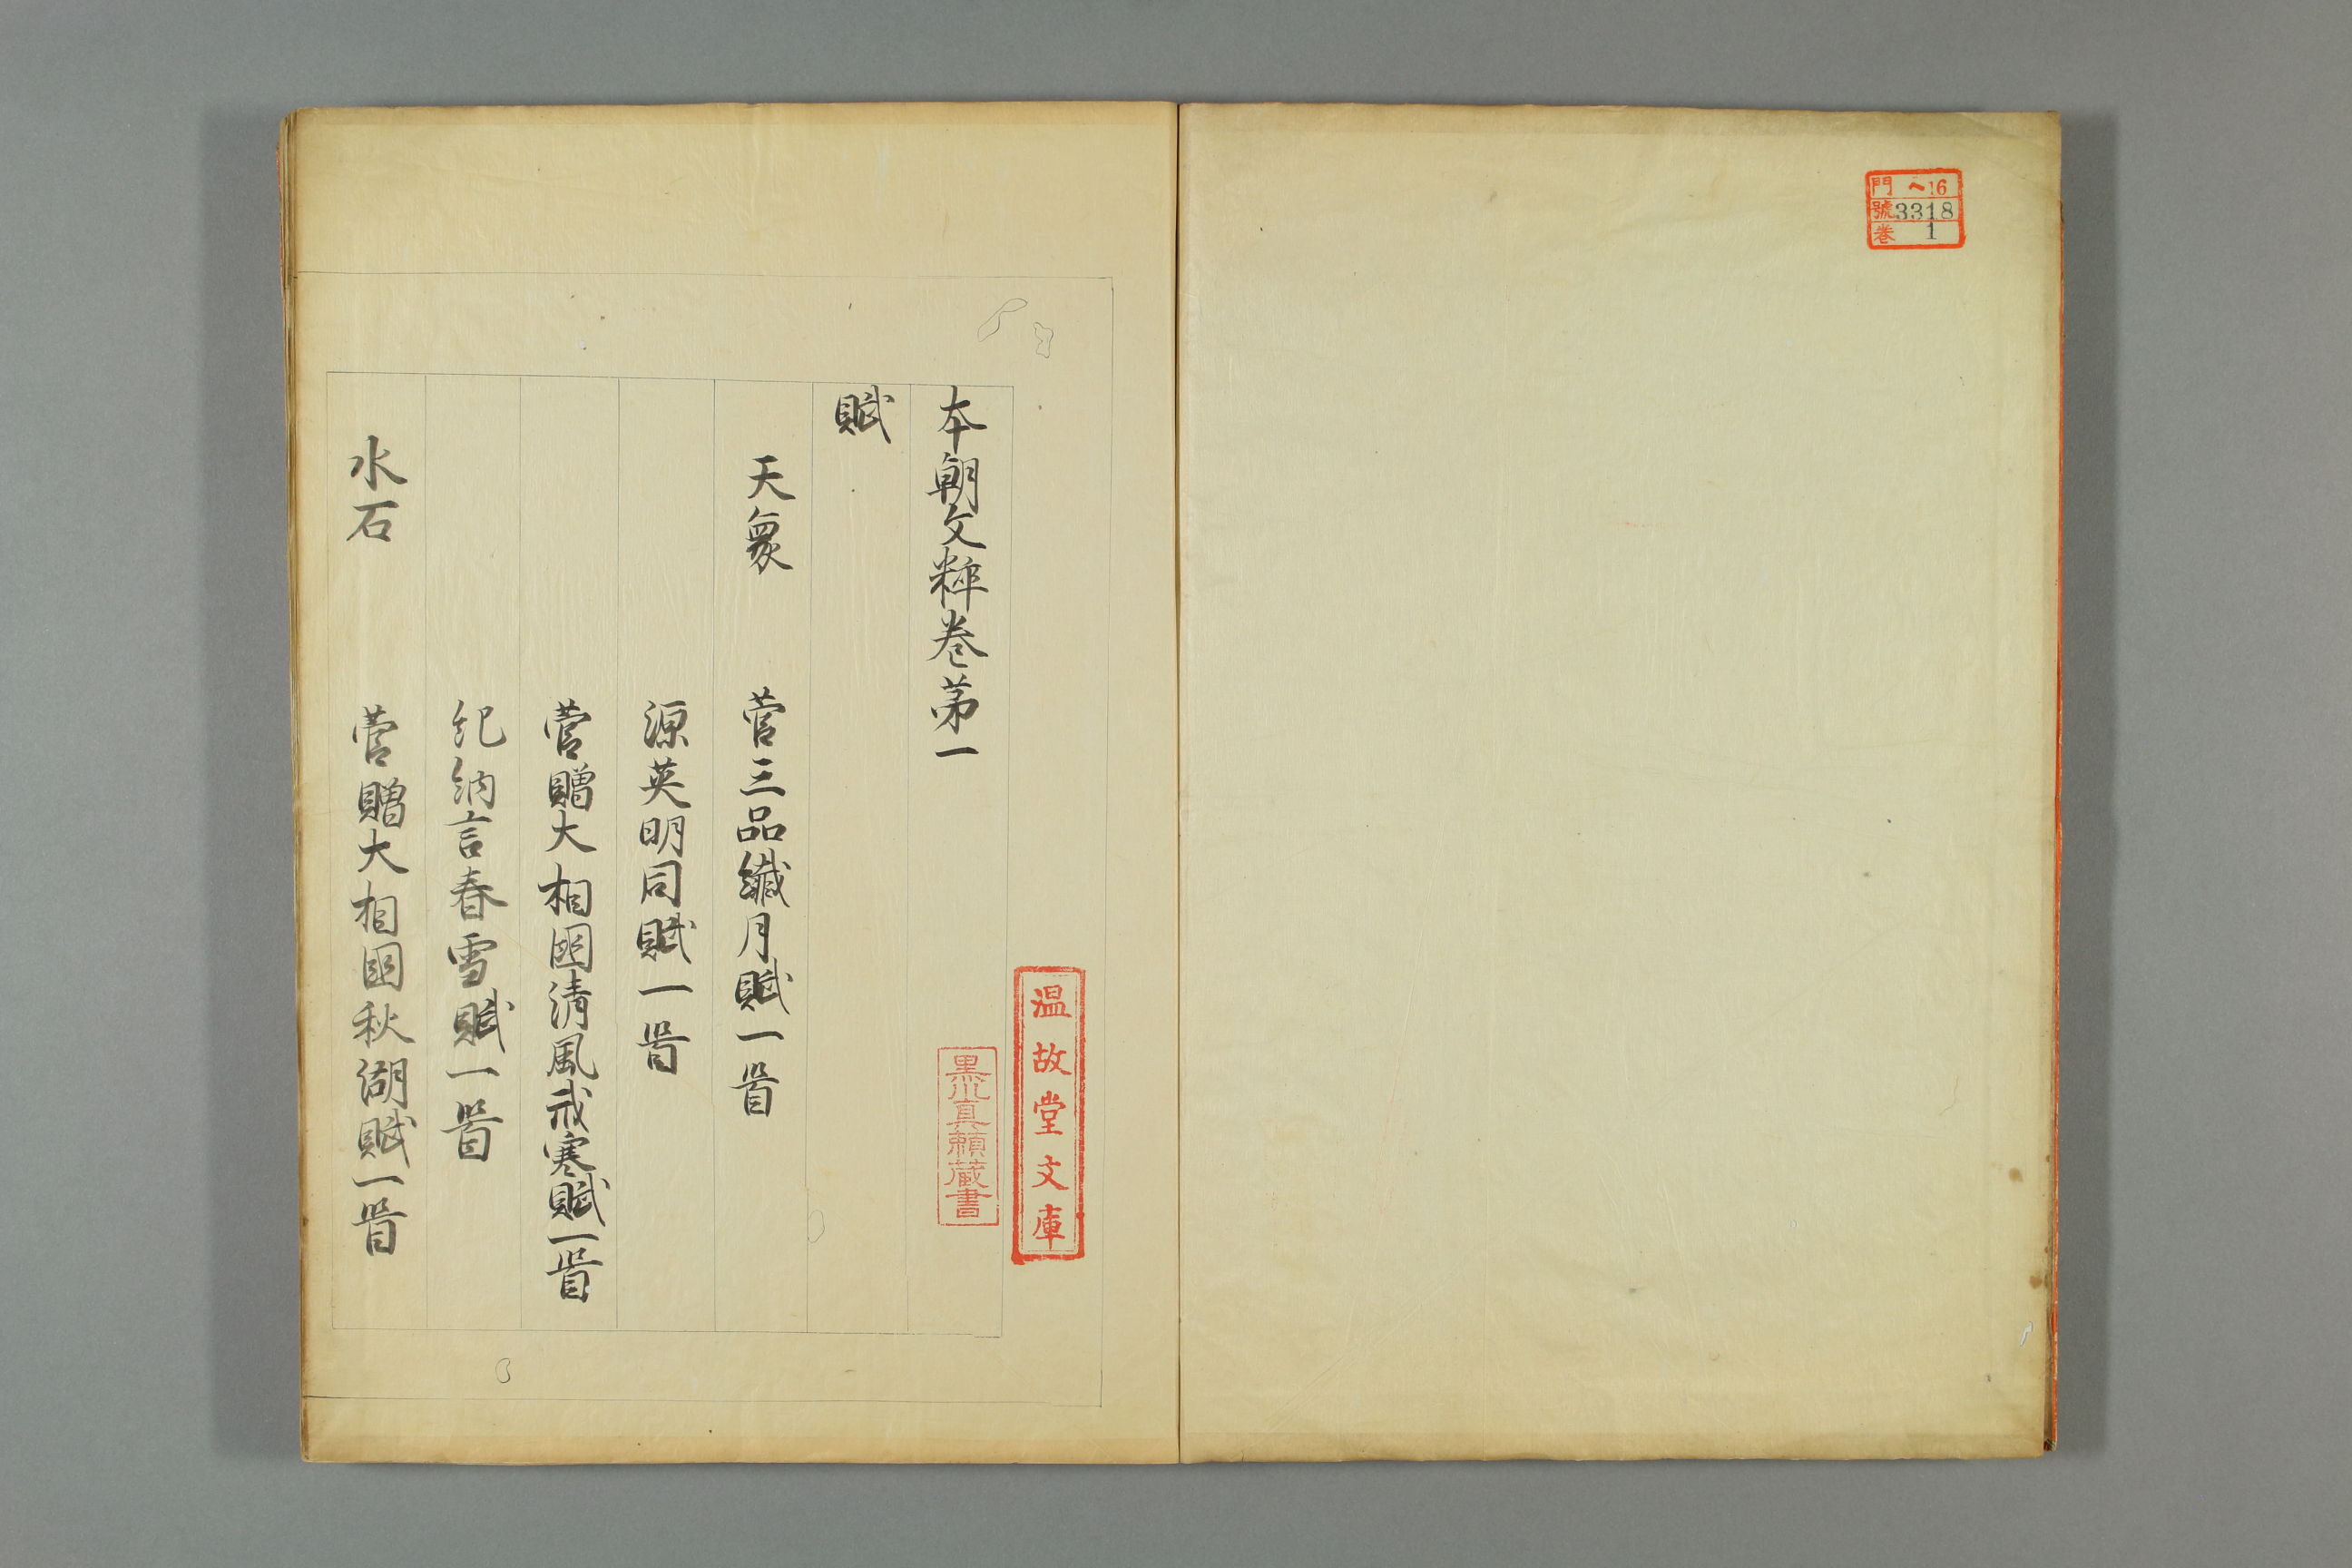 門 ヘ16
號 3318
巻 1
温故堂文庫
黒川真頼蔵書
本朝文粹巻苐一
賦
天象 菅三品纎月賦一首
源英明同賦一首
菅贈大相國清風戒寒賦一首
紀納言春雪賦一首
水石 菅贈大相國秋湖賦一首